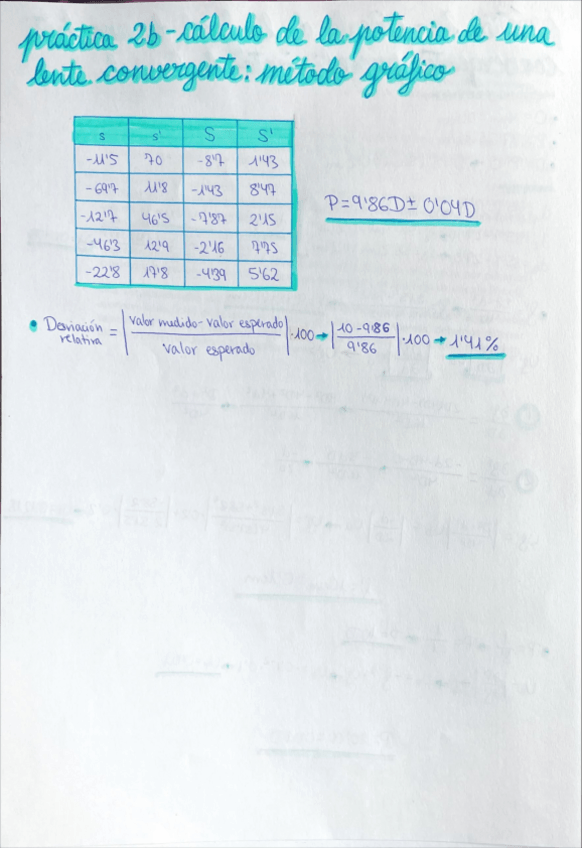 práctica 2b - cálculo de la potencia de una
lente convergente: método gráfico
s s' S S'
-11'5 70 -8'7 1'43
-69'7 11'8 -1'43 8'47
-12'7 46'5 -7'87 2'15
-46'3 12'9 -2'16 7'75
-22'8 17'8 -4'39 5'62
P = 9'86D ± 0'04D
• Desviación relativa = | valor medido - valor esperado / valor esperado | · 100 → | 10 - 9'86 / 9'86 | · 100 → 1'41%